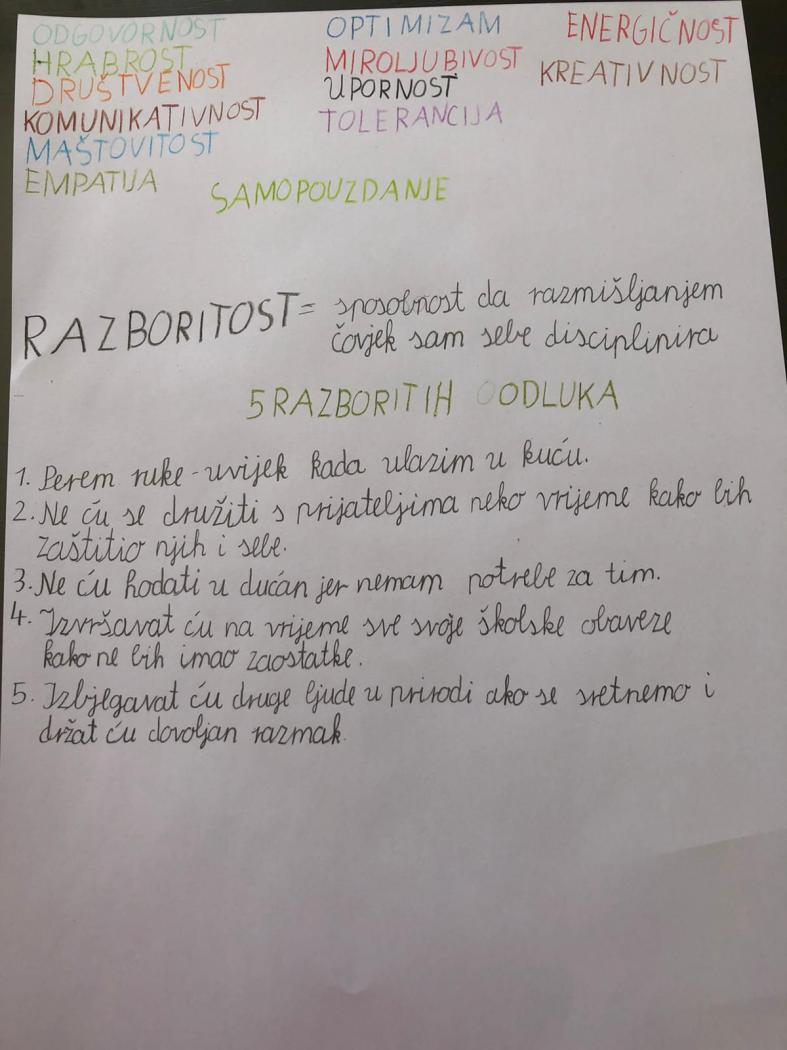 ODGOVORNOST
HRABROST
DRUŠTVENOST
KOMUNIKATIVNOST
MAŠTOVITOST
EMPATIJA
OPTIMIZAM
MIROLJUBIVOST
UPORNOST
TOLERANCIJA
ENERGIČNOST
KREATIVNOST
SAMOPOUZDANJE
RAZBORITOST = sposobnost da razmišljanjem
čovjek sam sebe disciplinira
5 RAZBORITIH ODLUKA
1. Perem ruke - uvijek kada ulazim u kuću.
2. Ne ću se družiti s prijateljima neko vrijeme kako bih
zaštitio njih i sebe.
3. Ne ću hodati u dućan jer nemam potrebe za tim.
4. Izvršavat ću na vrijeme sve svoje školske obaveze
kako ne bih imao zaostatke.
5. Izbjegavat ću druge ljude u prirodi ako se sretnemo i
držat ću dovoljan razmak.